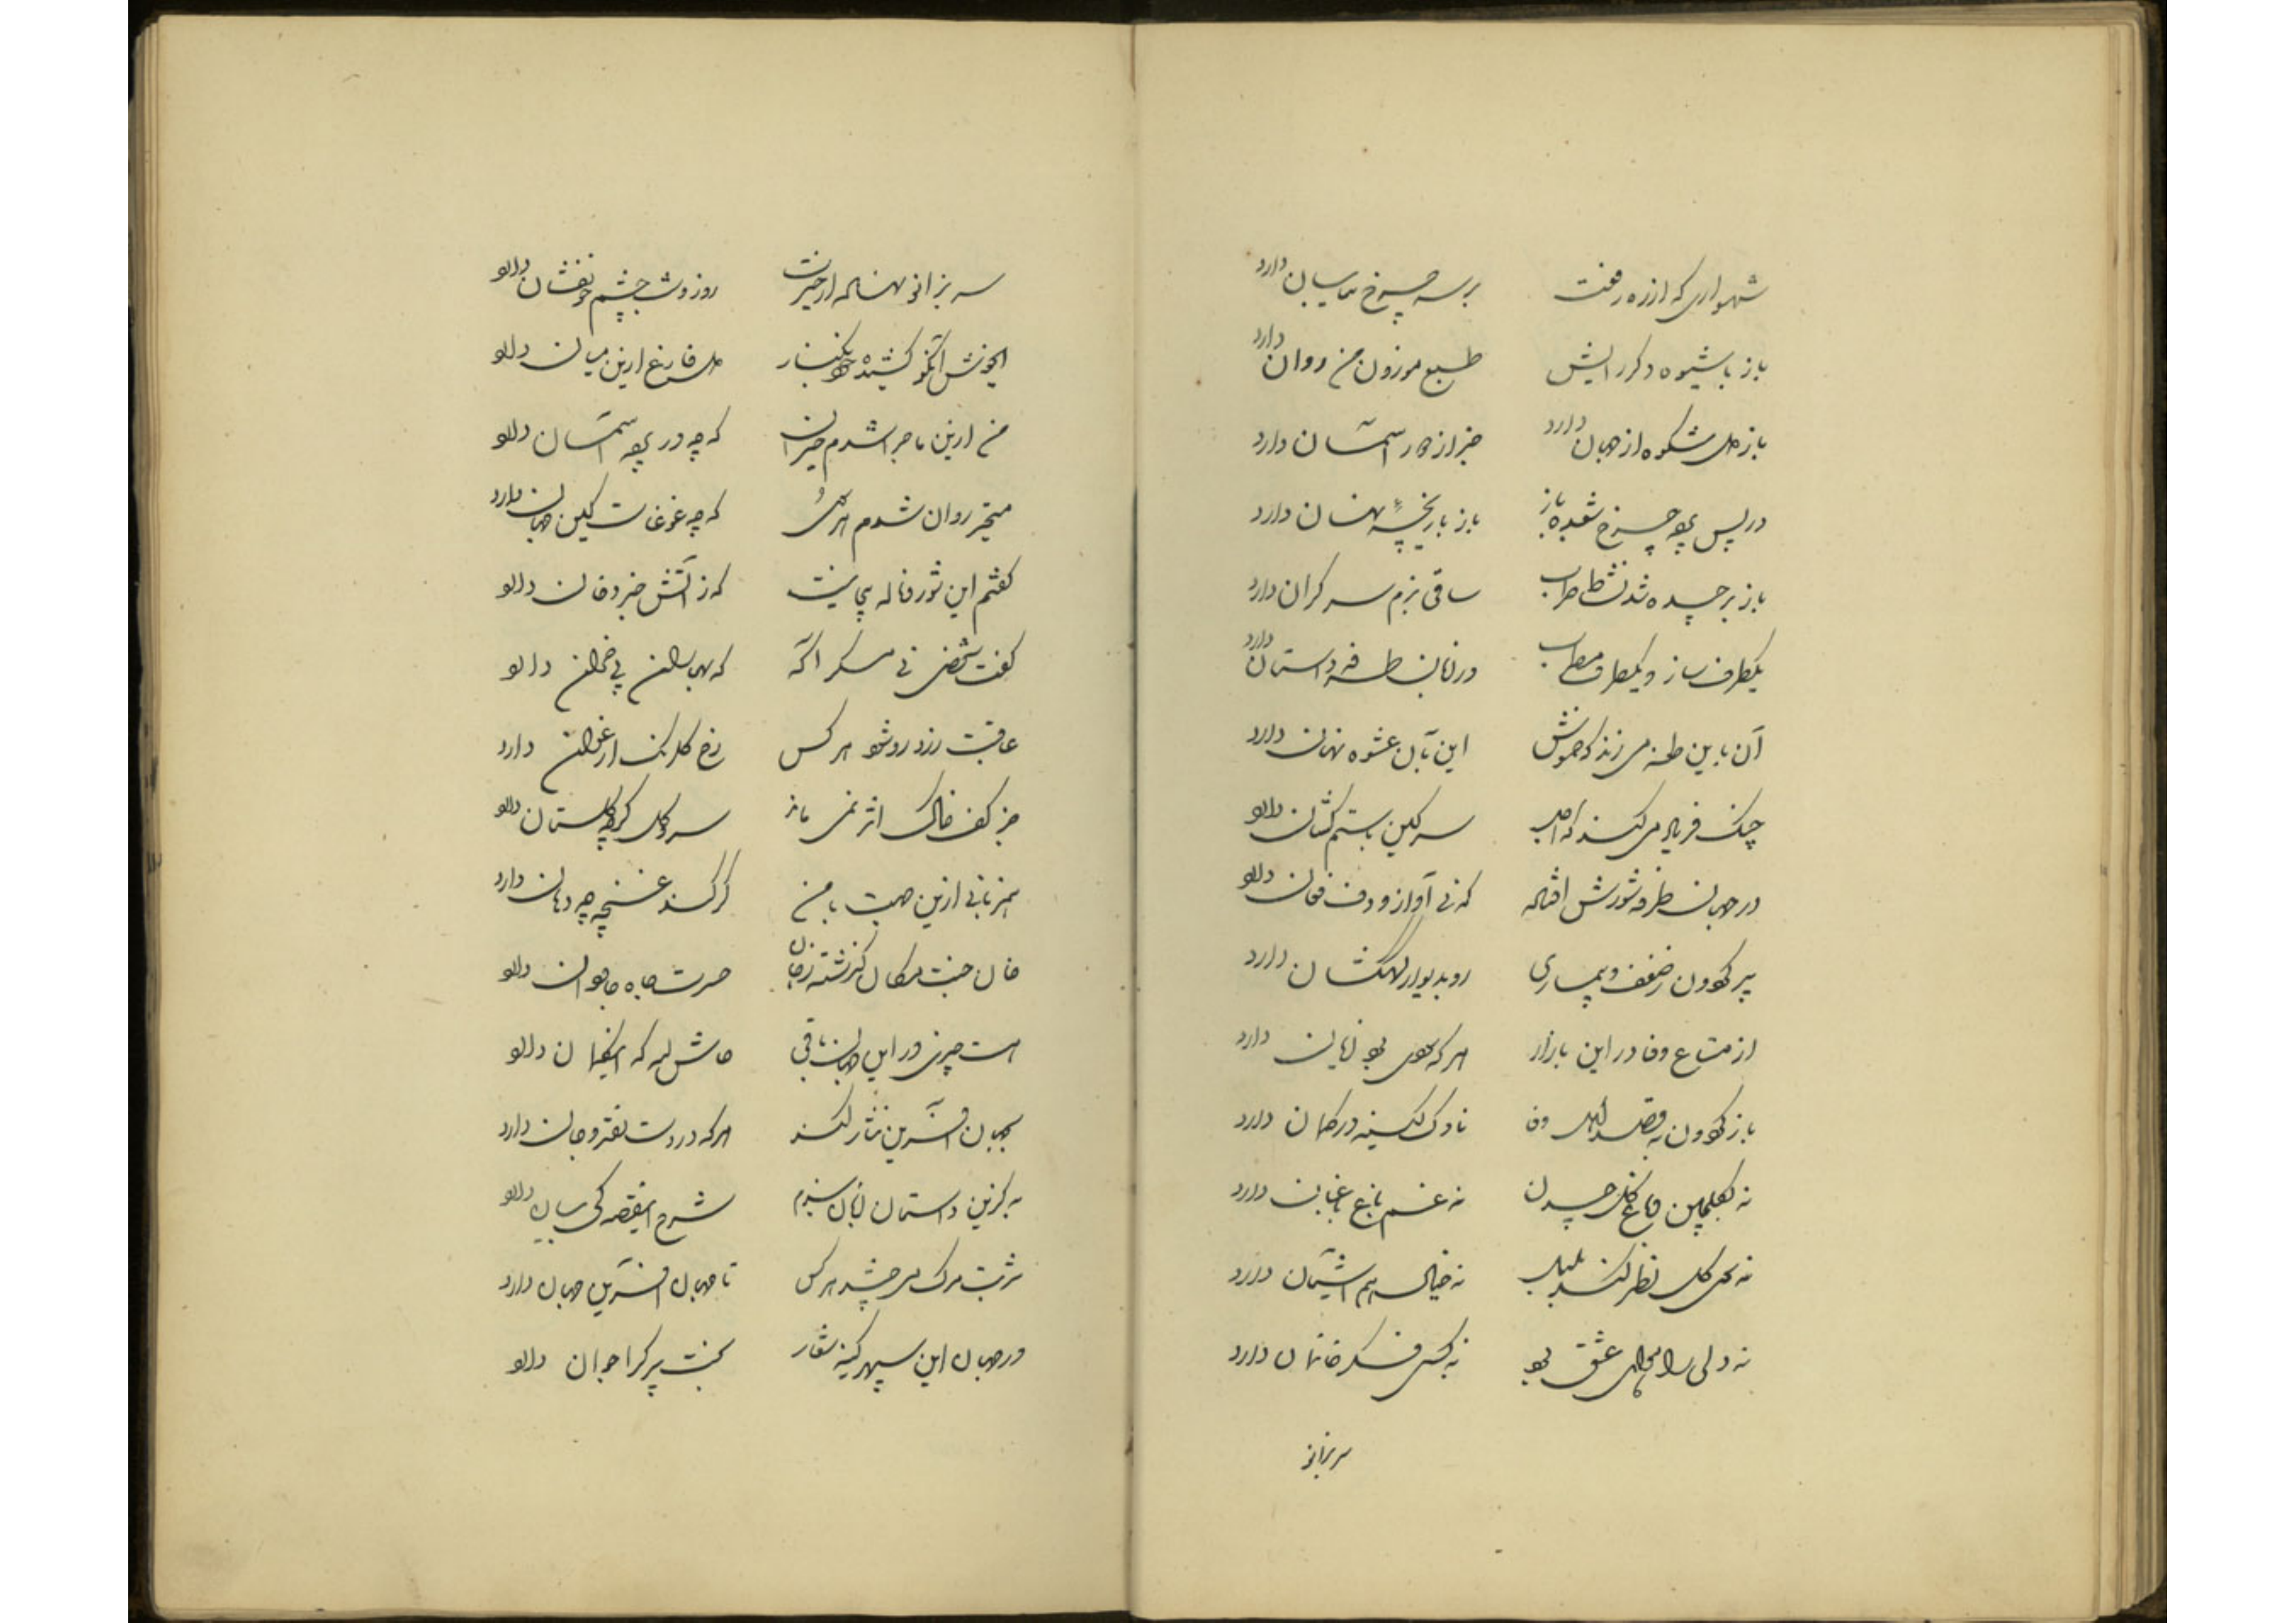 شهسواری که از ره رفعت بر سر چرخ سایبان دارد
باز با شیوه دکر رایش طبع موزون من روان دارد
باز دل شکوه از جهان دارد خبر از جور آسمان دارد
در پس پرده چرخ شعبده باز باز بازیچهٔ نهان دارد
باز برچیده شد نشاط طرب ساقی بزم سر کران دارد
یکطرف ساز و یکطرف مطرب در زبان طرفه داستان دارد
آن باین طعنه می زند که خموش این بآن عشوه نهان دارد
چنک فریاد می کند که سر کین با ستم کشان دارد
در جهان طرفه شورش افتاده که نی آواز و دف فغان دارد
پیر کردون ز ضعف و بیماری رو بدیوار کهکشان دارد
از متاع وفا در این بازار هر که سودی برد زیان دارد
باز کردون به قصد اهل وفا ناوک کینه در کمان دارد
نه بکلچین دماغ کل چیدن نه غم باغ باغبان دارد
نه بکل نظر کند بلبل نه خیال هم آشیان دارد
نه دلی را عشق بود نه کسی فکر خانمان دارد
سر بزانو
سر بزانو نهاده از حیرت روز و شب چشم خونفشان دارد
کشیده کنار دل فارغ از این میان دارد
من از این ماجرا شدم حیران که چه در پرده آسمان دارد
متحیر روان شدم هر سو که چه غوغاست کین جهان دارد
کفتم این شور و ناله بی نیست که ز آتش خبر دخان دارد
کفت شخصی نی آکه که بهاران پی خزان دارد
عاقبت زرد رو شود هر کس رخ کلرنک ارغوان دارد
جز کف خاک اثر نمی ماند سرو و کل کرچه کلستان دارد
بمیزبانی ازین صحبت با من کر کند غنچه چه دهان دارد
خان جنت مکان کذشته ز جان حسرت جاه جاودان دارد
هست چیزی در این جهان باقی حاش لله که اینکمان دارد
بجهان آفرین نثار کند هر که در دست نقد و جان دارد
به کزین داستان زبان بندم شرح این قصه کی بیان دارد
شربت مرک می چشد هر کس تا جهان آفرین جهان دارد
در جهان این سپهر کینه شعار بخت پیر کرا جوان دارد